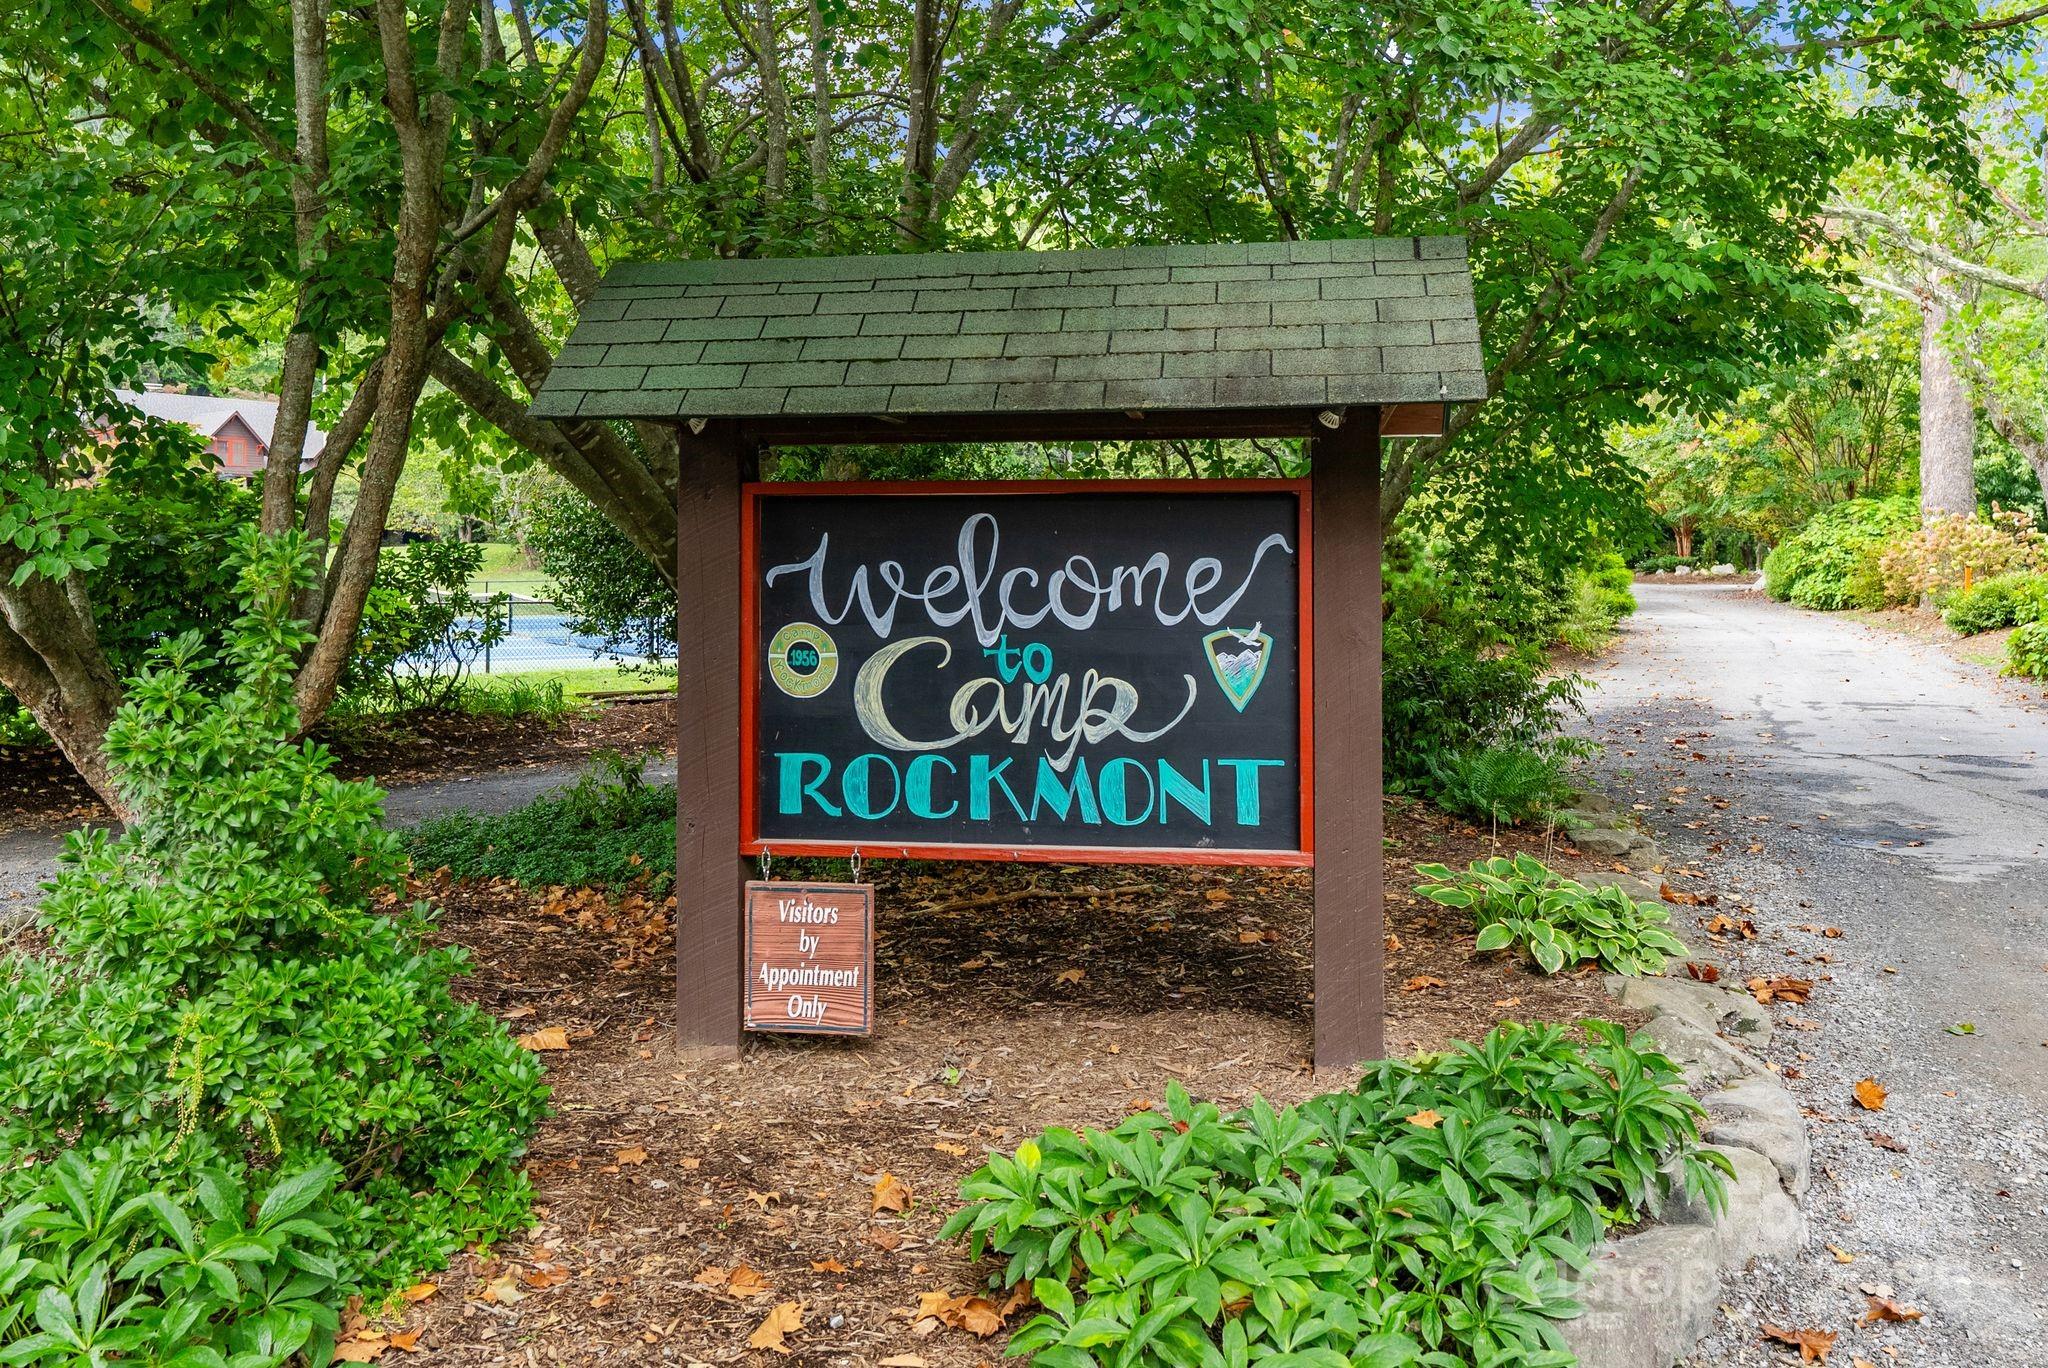 Welcome
to
Camp
ROCKMONT
Camp
1956
Rockmont
Visitors
by
Appointment
Only